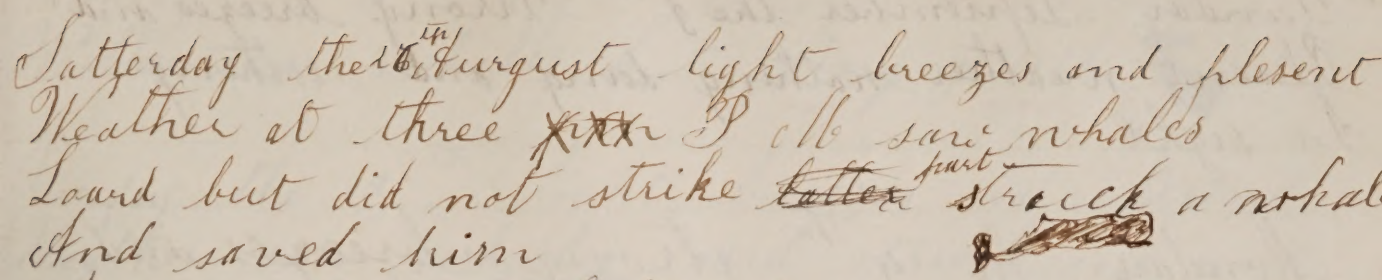 Satterday the 16th Aurgust light breezes and plesent
Weather at three P M saw whales
Loard but did not strike latter part struck a whal
And saved him